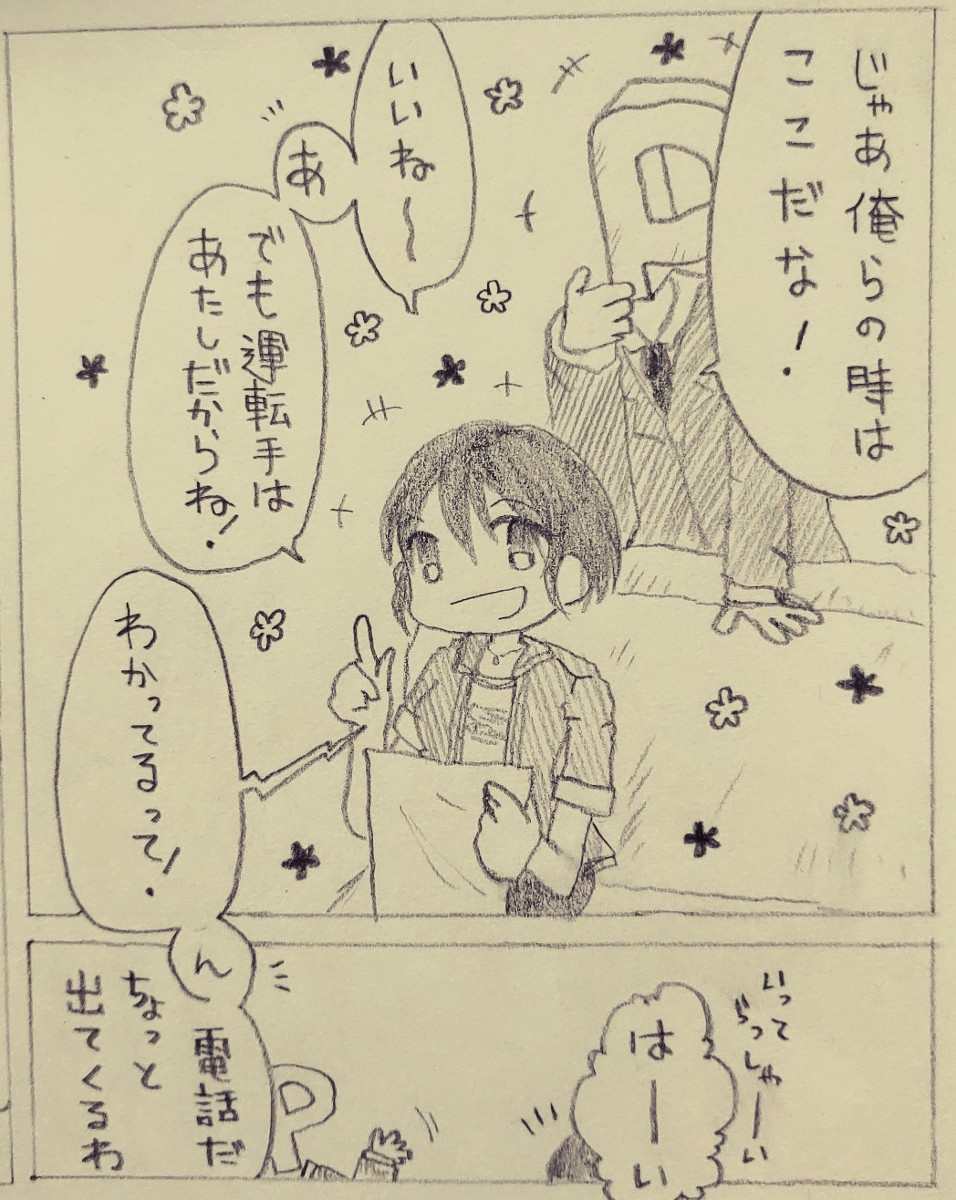 じゃあ俺らの時は
ここだな!
いいね〜
あ
でも運転手は
あたしだからね!
わかってるって!
ん
電話だ
ちょっと
出てくるわ
いって
らっしゃーい
はーい
P